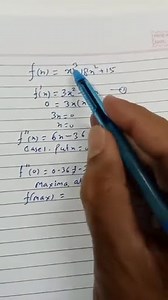 f(x) = x³ 18x² + 15
f'(x) = 3x²
0 = 3x(x
3x = 0
x = 0
f''(x) = 6x - 36
Case1. Put x =
f''(0) = 0-36 =
Maxima at
f(max) =